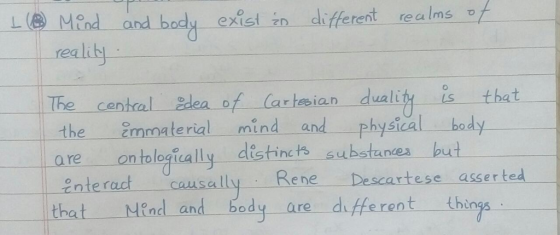 Mind and body exist in different realms of
reality.
The central idea of Cartesian duality is that
the immaterial mind and physical body
are ontologically distincts substances but
interact causally. Rene Descartese asserted
that Mind and body are different things.